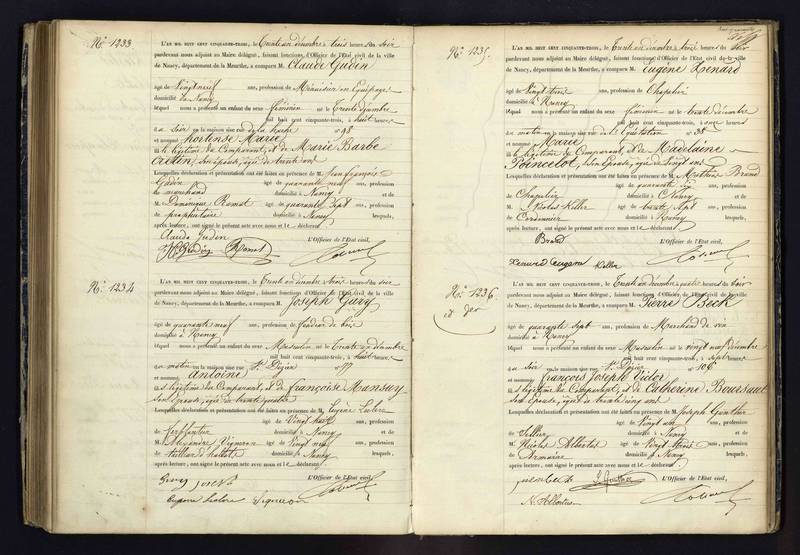 N°. 1233.
L'AN MIL HUIT CENT CINQUANTE-TROIS, le Trente un décembre à trois heures du soir
pardevant nous adjoint au Maire délégué, faisant fonctions d'Officier de l'Etat civil de la ville
de Nancy, département de la Meurthe, a comparu M. Claude Gudin
âgé de Vingt neuf ans, profession de Menuisier en Equipages
domicilié à Nancy
lequel nous a présenté un enfant du sexe féminin né le Trente décembre
mil huit cent cinquante-trois, à huit heures
du soir en la maison sise rue de la hache n° 98
et nommé hortense Marie
fille légitime du Comparant, et de Marie Barbe
son épouse, âgée de trente ans
Lesquelles déclaration et présentation ont été faites en présence de M. Jean françois
Gudin âgé de quarante neuf ans, profession
de marchand domicilié à Nancy et de
M. Dominique Ramot âgé de quarante Sept ans, profession
de propriétaire domicilié à Nancy lesquels,
après lecture, ont signé le présent acte avec nous et le déclarant
Claude Gudin L'Officier de l'Etat civil,
Ramot
N°. 1234
L'AN MIL HUIT CENT CINQUANTE-TROIS, le Trente un décembre à trois heures du soir
pardevant nous adjoint au Maire délégué, faisant fonctions d'Officier de l'Etat civil de la ville
de Nancy, département de la Meurthe, a comparu M. Joseph Gury
âgé de quarante neuf ans, profession de fendeur de bois
domicilié à Nancy
lequel nous a présenté un enfant du sexe Masculin né le Trente un décembre
mil huit cent cinquante-trois, à huit heures
du matin en la maison sise rue St. Dizier n° 177
et nommé antoine
fils légitime du Comparant, et de françoise Mansuy
son Epouse, âgée de trente quatre
Lesquelles déclaration et présentation ont été faites en présence de M. Eugène
âgé de Vingt huit ans, profession
de ferblantier domicilié à Nancy et de
M. Alexandre Vigneron âgé de Vingt neuf ans, profession
de domicilié à Nancy lesquels,
après lecture, ont signé le présent acte avec nous et le déclarant
L'Officier de l'Etat civil,
N°. 1235.
L'AN MIL HUIT CENT CINQUANTE-TROIS, le Trente un décembre à trois heures du soir
pardevant nous adjoint au Maire délégué, faisant fonctions d'Officier de l'Etat civil de la ville
de Nancy, département de la Meurthe, a comparu M. Eugène Lenard
âgé de Vingt trois ans, profession de Chapelier
domicilié à Nancy
lequel nous a présenté un enfant du sexe féminin né le trente décembre
mil huit cent cinquante-trois, à onze heures
du matin en la maison sise rue de l'Equitation n° 38
et nommé Marie
fille légitime du Comparant, et de Madelaine
Poincelot, son Epouse, âgée de Vingt ans
Lesquelles déclaration et présentation ont été faites en présence de M. Mathieu Brand
âgé de quarante Six ans, profession
de Chapelier domicilié à Nancy et de
M. Nicolas Keller âgé de trente Sept ans, profession
de Cordonnier domicilié à Nancy lesquels,
après lecture, ont signé le présent acte avec nous et le déclarant
Brand L'Officier de l'Etat civil,
Lenard Eugene Keller
N°. 1236
L'AN MIL HUIT CENT CINQUANTE-TROIS, le Trente un décembre à quatre heures du soir
pardevant nous adjoint au Maire délégué, faisant fonctions d'Officier de l'Etat civil de la ville
de Nancy, département de la Meurthe, a comparu M. Pierre Beck
âgé de quarante Sept ans, profession de Marchand de vin
domicilié à Nancy
lequel nous a présenté un enfant du sexe Masculin né le vingt neuf décembre
mil huit cent cinquante-trois, à Sept heures
du soir en la maison sise rue St. Dizier n° 106
et nommé françois Joseph Victor
fils légitime du Comparant, et de Catherine Boursaut
son Epouse, âgée de trente cinq ans
Lesquelles déclaration et présentation ont été faites en présence de M. Joseph Gunther
âgé de Vingt un ans, profession
de Sellier domicilié à Nancy et de
M. Nicolas Albertus âgé de Vingt trois ans, profession
de domicilié à Nancy lesquels,
après lecture, ont signé le présent acte avec nous et le déclarant
L'Officier de l'Etat civil,
N. Albertus